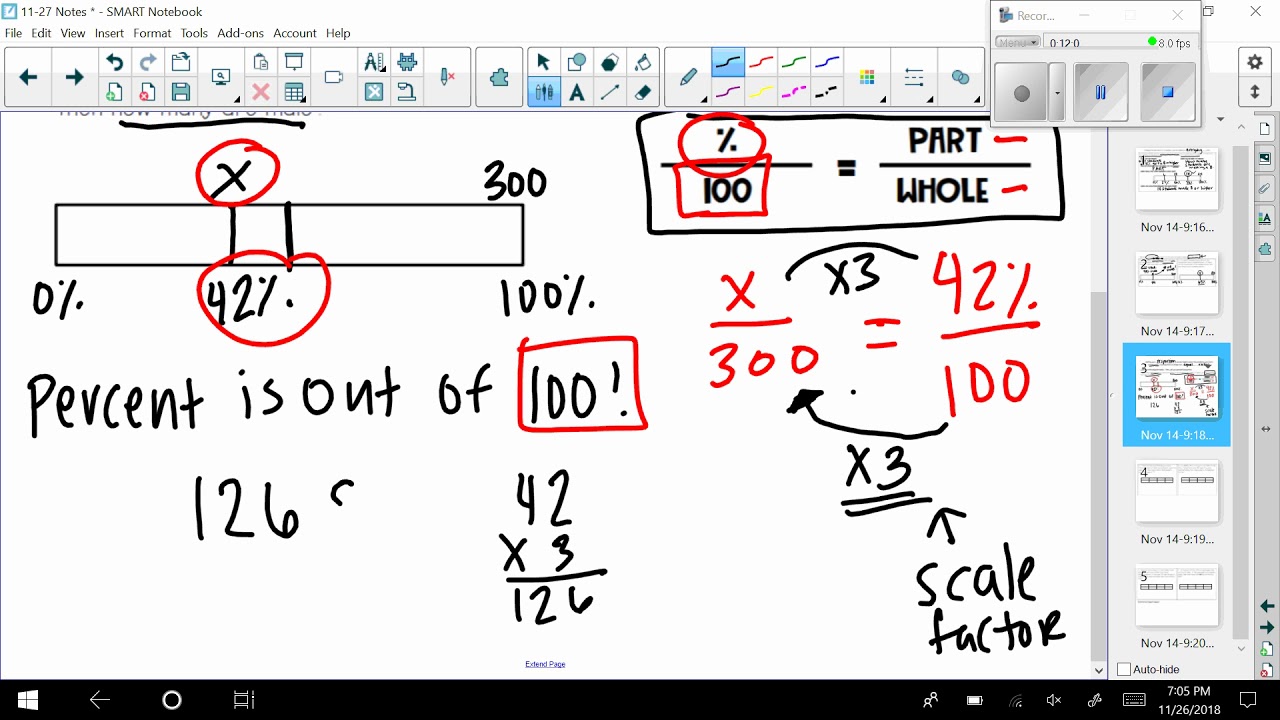 11-27 Notes * - SMART Notebook
File Edit View Insert Format Tools Add-ons Account Help
Recor...
Menu
0:12:0
8.0 fps
then how many are male
X
300
0%
42%.
100%.
Percent is out of 100!
126
42
X 3
126
%
100
=
PART
WHOLE
X
300
=
42%
100
X3
X3
scale
factor
Extend Page
1
Nov 14-9:16...
2
Nov 14-9:17...
3
Nov 14-9:18...
4
Nov 14-9:19...
5
Nov 14-9:20...
Auto-hide
7:05 PM
11/26/2018